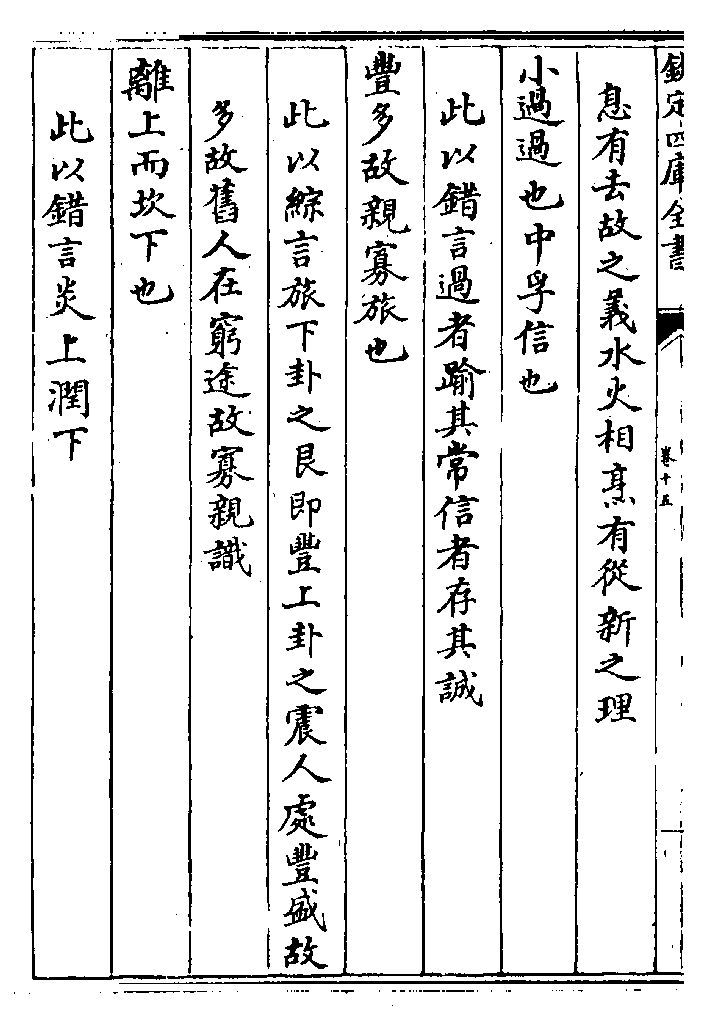 欽定四庫全書
卷十五
息有去故之義水火相熹有從新之理
小過過也中孚信也
此以錯言過者踰其常信者存其誠
豐多故親寡旅也
此以綜言旅下卦之艮即豐上卦之震人處豐盛故
多故舊人在窮途故寡親識
離上而坎下也
此以錯言炎上潤下